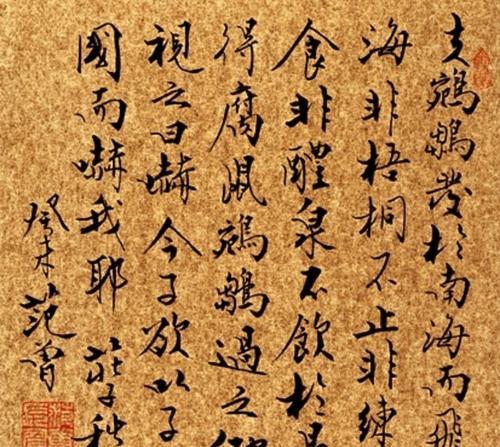 夫鵷鶵發於南海而飛
海非梧桐不止非練
食非醴泉不飲於是
得腐鼠鵷鶵過之
視之曰嚇今子欲以子
國而嚇我耶 莊子秋
癸未范曾